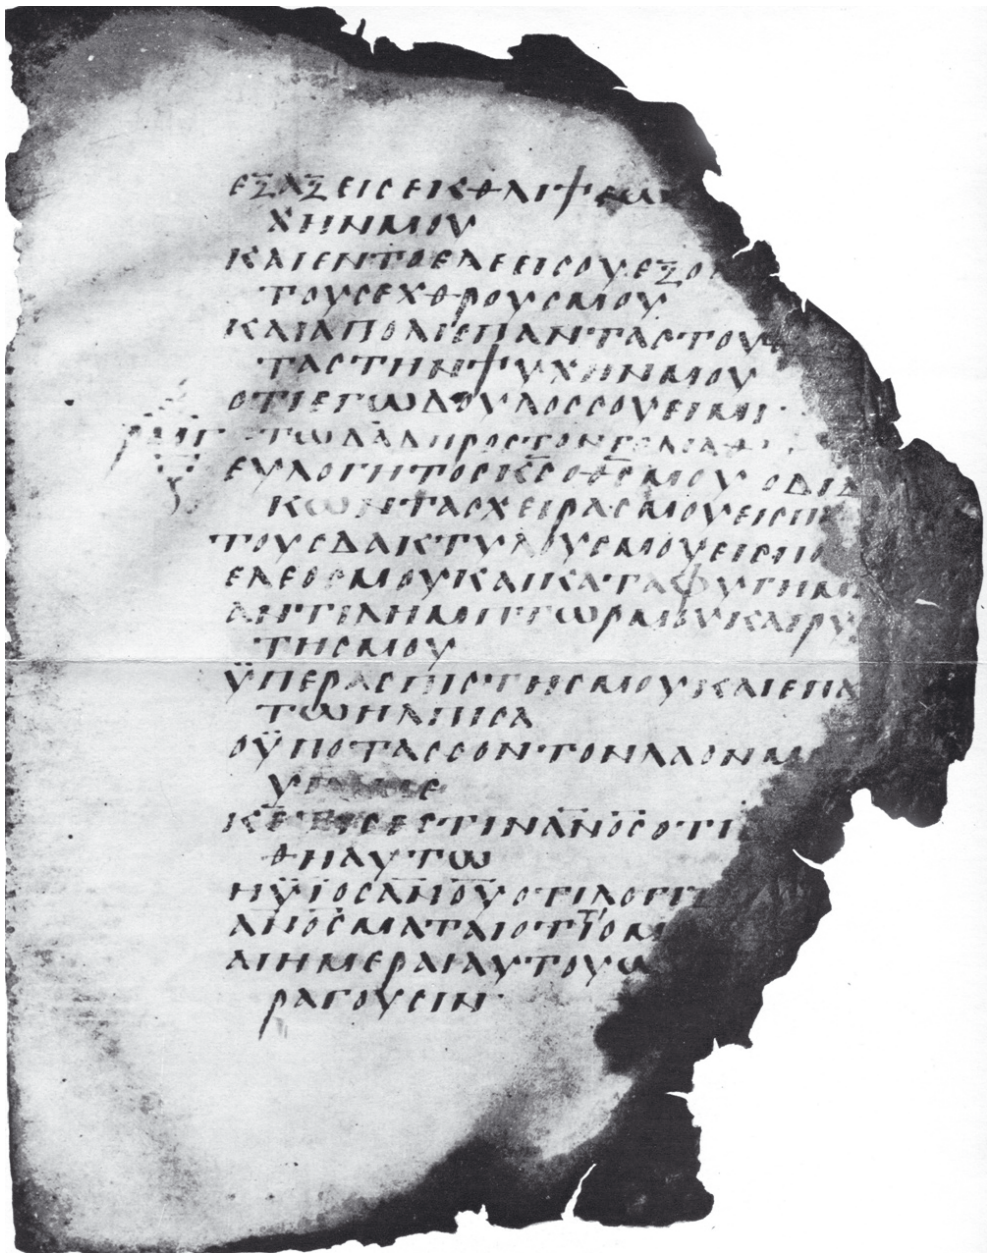 ΕΞΑΞΕΙCΕΙΚΘΛΙΨΕΩ
ΧΗΝΜΟΥ
ΚΑΙΕΝΤΟΕΛΕΕΙCΟΥΕΞΟ
ΤΟΥCΕΧΘΡΟΥCΜΟΥ
ΚΑΙΑΠΟΛΙCΠΑΝΤΑCΤΟΥ
ΤΑCΤΗΝΨΥΧΗΝΜΟΥ
ΟΤΙΕΓΩΔΟΥΛΟCCΟΥΕΙΜΙ
ΡΜΓ ΤΩΔΑΔΠΡΟCΤΟΝΓΟΛΙΑΘ
ΕΥΛΟΓΗΤΟCΚ̅C̅ΟΘ̅C̅ΜΟΥΟΔΙΔ
ΚΩΝΤΑCΧΕΙΡΑCΜΟΥΕΙCΠ
ΤΟΥCΔΑΚΤΥΛΟΥCΜΟΥΕΙCΠΟ
ΕΛΕΟCΜΟΥΚΑΙΚΑΤΑΦΥΓΗΜ
ΑΝΤΙΛΗΜΠΤΩΡΜΟΥΚΑΙΡΥ
ΤΗCΜΟΥ
ΫΠΕΡΑCΠΙCΤΗCΜΟΥΚΑΙΕΠΑ
ΤΩΗΛΠΙCΑ
ΟΫΠΟΤΑCCΟΝΤΟΝΛΑΟΝΜ
Κ̅Ε̅ΤΙCΕCΤΙΝΑ̅Ν̅Ο̅C̅ΟΤΙ
ΘΗΑΥΤΩ
ΗΫΙΟCΑ̅Ν̅Ο̅Υ̅ΟΤΙΛΟΓΙ
Α̅Ν̅Ο̅C̅ΜΑΤΑΙΟΤΙΟΜ
ΑΙΗΜΕΡΑΙΑΥΤΟΥΩ
ΡΑΓΟΥCΙΝ